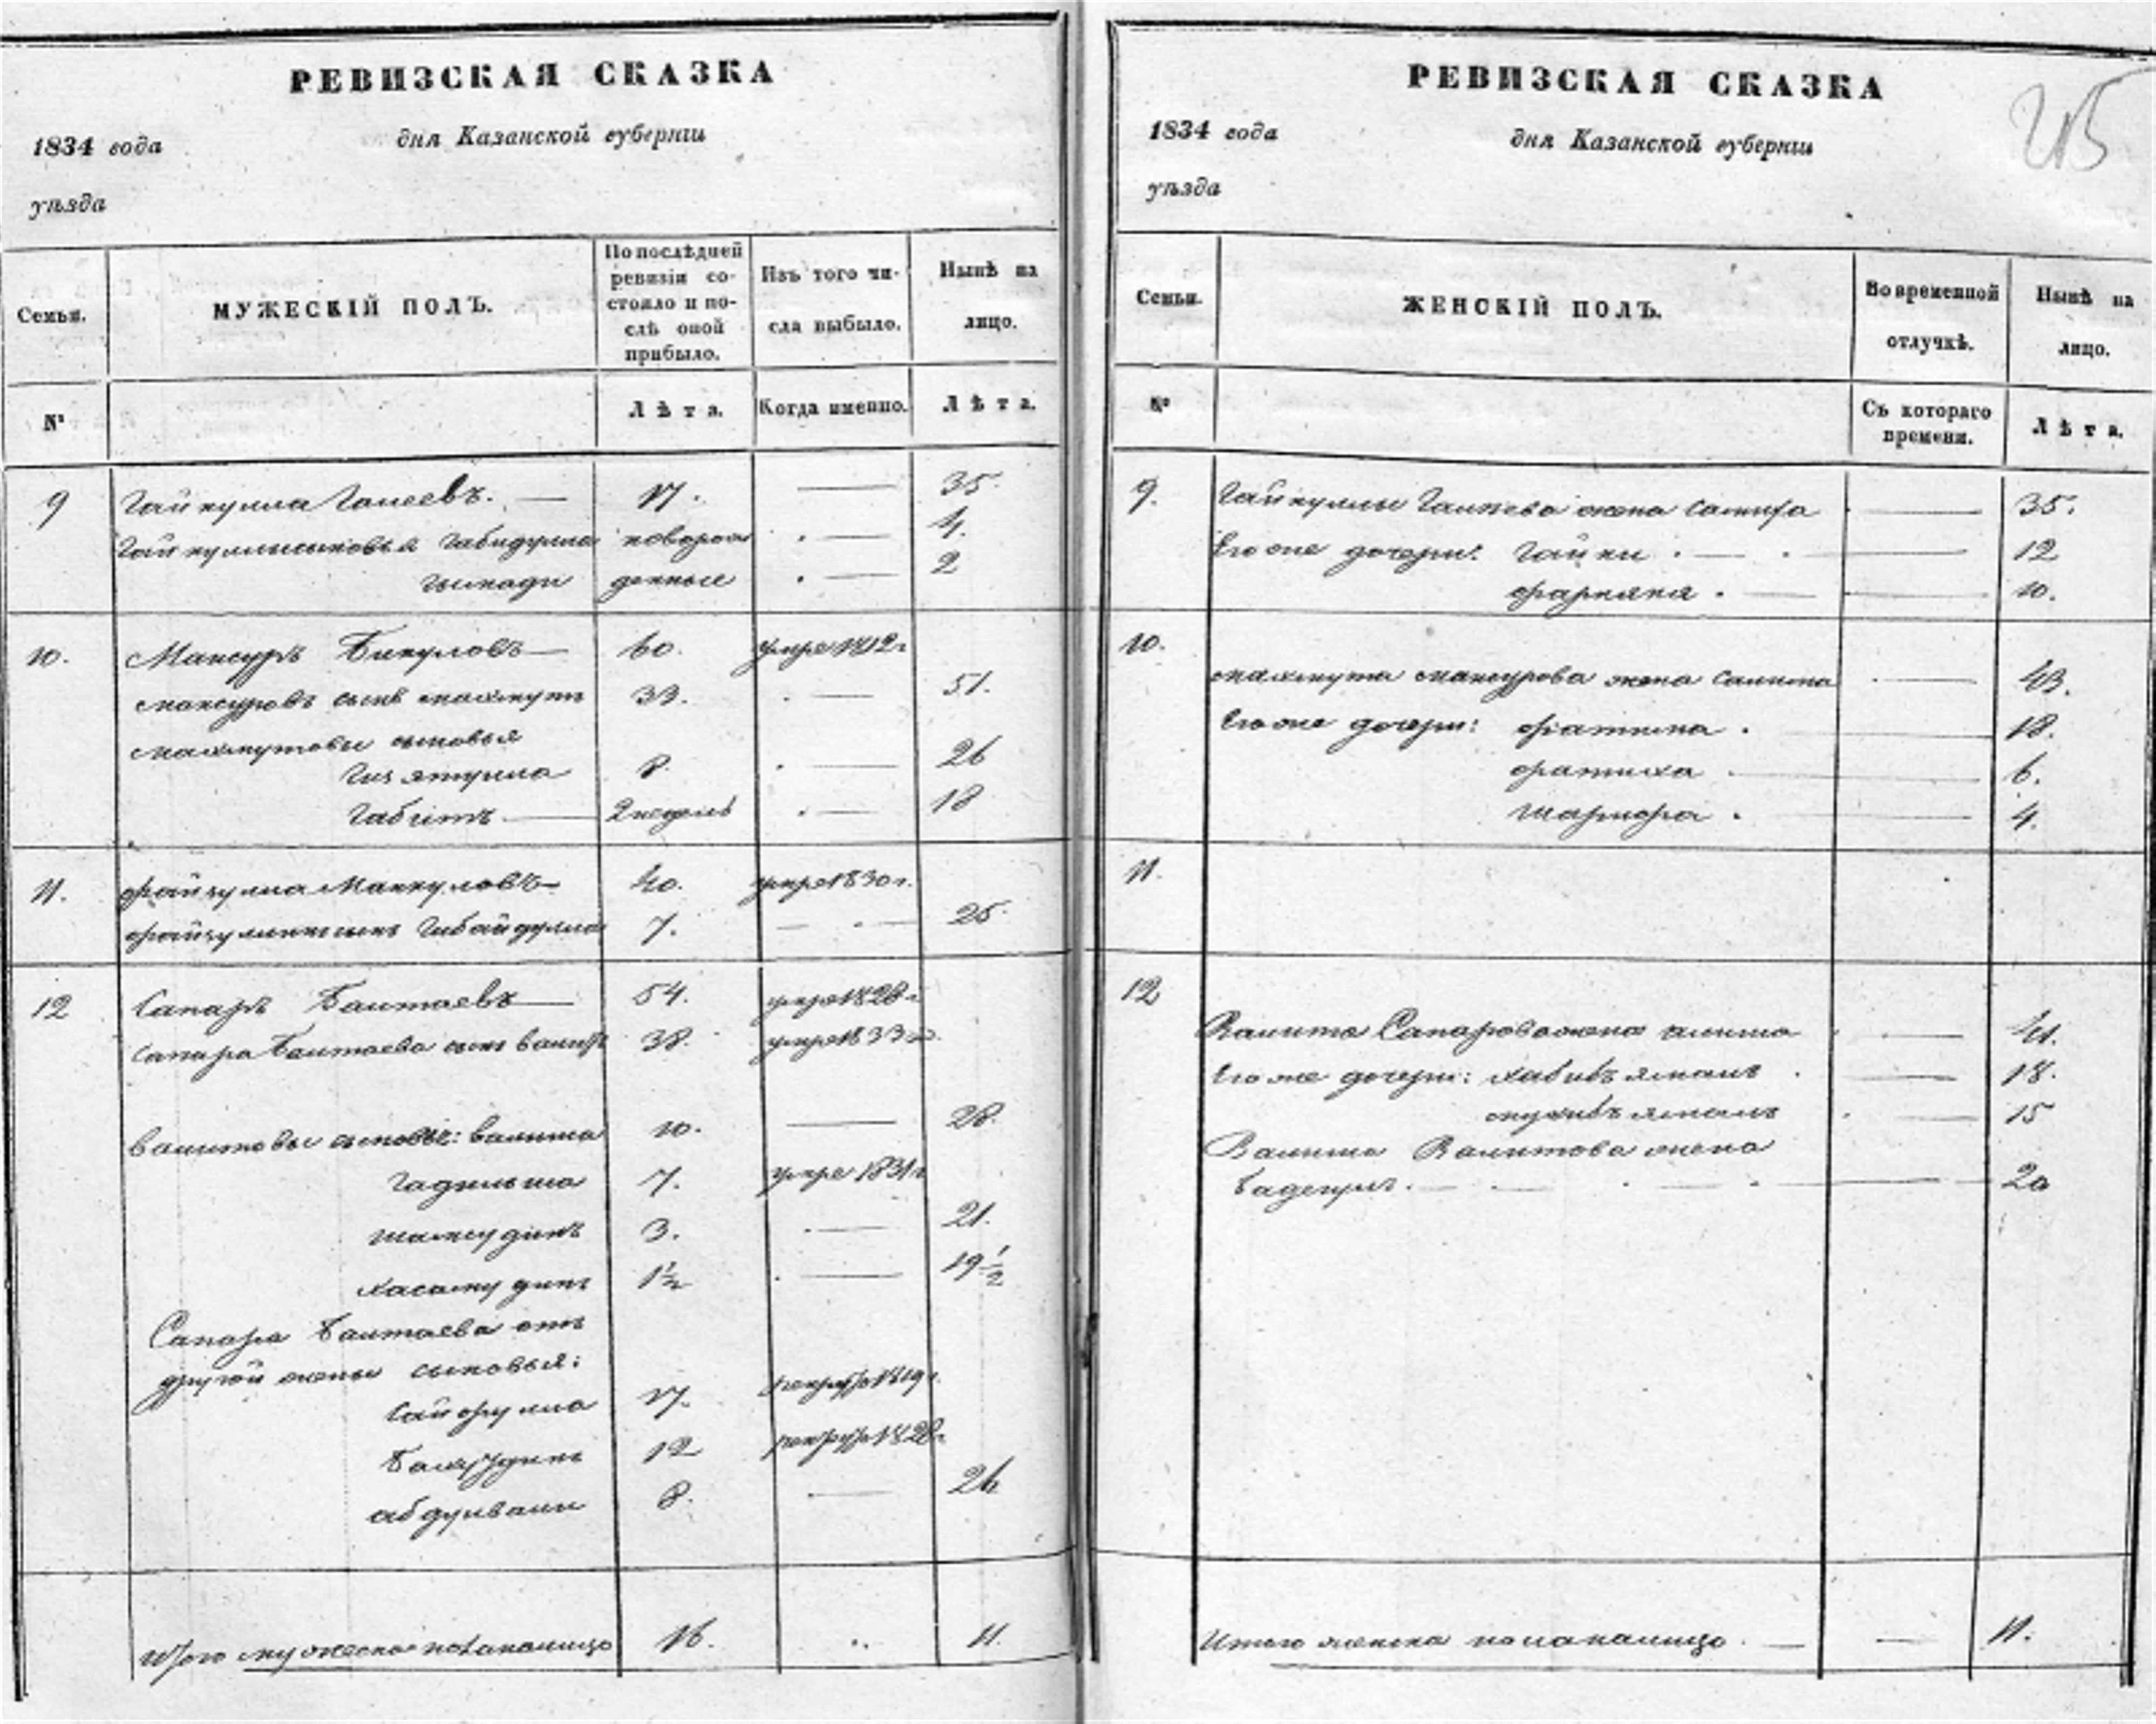 РЕВИЗСКАЯ СКАЗКА
1834 года дня Казанской губерніи
уѣзда
Семьи.
МУЖЕСКІЙ ПОЛЪ.
По послѣдней
ревизіи со-
стояло и по-
слѣ оной
прибыло.
Изъ того чи-
сла выбыло.
Нынѣ на
лицо.
№
Лѣта.
Когда именно.
Лѣта.
9 Гайнулла Галеевъ. — 17. — 35.
Габидулла новорож 4.
денные — 2
10. Мансуръ Бикуловъ — 60. умре 1812г
мансуровъ сынъ махмутъ 33. — 51.
махмутовы сыновья
Гизятулла 8. — 26
Габитъ — 2 недель — 18
11. файзулла Манкуловъ — 40. умре 1830г.
сынъ Гибайдулла 7. — 25.
12 Сапаръ Балтаевъ — 54. умре 1828г
Сапара Балтаева сынъ валитъ 38. умре 1833г.
валитовы сыновья: валиша 10. — 28.
Гадильша 7. умре 1831г
шамсудинъ 3. — 21.
хасамудинъ 1½ — 19½
Сапара Балтаева отъ
другой жены сыновья:
Сайфулла 17. рекрут 1819г.
12 рекрут 1828г.
абдулвали 8. — 26
Итого мужеска пола налицо 16. 11.
РЕВИЗСКАЯ СКАЗКА
1834 года дня Казанской губерніи
уѣзда
Семьи.
ЖЕНСКІЙ ПОЛЪ.
Во временной
отлучкѣ.
Нынѣ на
лицо.
№
Съ котораго
времени.
Лѣта.
9. Гайнуллы Галеева жена — 35.
Его же дочери: — 12
— 10.
10.
махмута мансурова жена Салима — 43.
Его же дочери: фатима — 18.
фатиха — 6.
4.
11.
12
Валита Сапарова жена алима — 41.
Его же дочери: хабибъямалъ — 18.
мухибъямалъ — 15
Валиши Валитова жена
20
Итого женска пола налицо — 11.